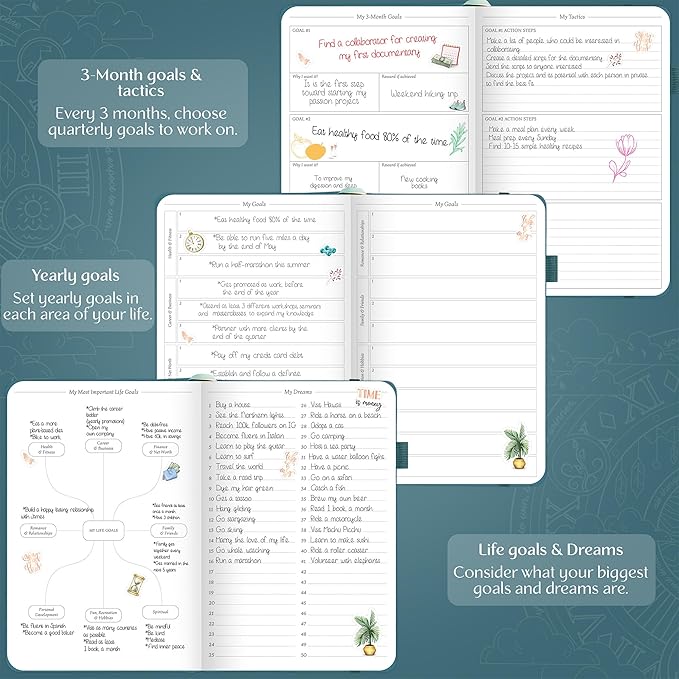 3-Month goals &
tactics
Every 3 months, choose
quarterly goals to work on.
My 3-Month Goals
GOAL #1
Find a collaborator for creating
my first documentary
Why I want it?
It is the first step
toward starting my
passion project
Reward if achieved
Weekend hiking trip
GOAL #2
Eat healthy food 80% of the time
Why I want it?
To improve my
digestion and sleep
Reward if achieved
New cooking
books
My Tactics
GOAL #1 ACTION STEPS
Make a list of people who could be interested in
collaborating
Create a detailed script for the documentary
Send the script to anyone interested
Discuss the project and its potential with each person in private
to find the best fit
GOAL #2 ACTION STEPS
Make a meal plan every week
Meal prep every Sunday
Find 10-15 simple healthy recipes
Yearly goals
Set yearly goals in
each area of your life.
My Goals
Health & Fitness
1
*Eat healthy food 80% of the time
2
*Be able to run five miles a day
by the end of May
3
*Run a half-marathon this summer
Career & Business
1
*Get promoted at work before
the end of the year
2
*Attend at least 3 different workshops, seminars
and masterclasses to expand my knowledge
3
*Partner with more clients by the
end of the quarter
1
*Pay off my credit card debt
2
*Establish and follow a define
My Goals
Romance & Relationships
1
2
3
Family & Friends
1
2
3
1
2
3
My Most Important Life Goals
*Eat a more
plant-based diet
*Bike to work
Health
& Fitness
*Climb the career
ladder
(yearly promotions)
*Open my
own company
Career
& Business
*Be debt-free
*Have passive income
*Have 10k in savings
Finance
& Net Worth
*Build a happy, lasting relationship
with James
Romance
& Relationships
MY LIFE GOALS
*See friends at least
once a month
*Have 3 children
Family
& Friends
*Family gets
together every
weekend
*Get married in the
next 5 years
Personal
Development
*Be fluent in Spanish
*Become a good baker
Fun, Recreation
& Hobbies
*Visit as many countries
as possible
*Read at least
1 book a month
Spiritual
*Be mindful
*Be kind
*Meditate
*Find inner peace
My Dreams
TIME
is money
1 Buy a house
2 See the Northern lights
3 Reach 100k followers on IG
4 Become fluent in Italian
5 Learn to play the guitar
6 Learn to surf
7 Travel the world
8 Take a road trip
9 Dye my hair green
10 Get a tattoo
11 Hang gliding
12 Go stargazing
13 Go skiing
14 Marry the love of my life
15 Go whale watching
16 Run a marathon
17
18
19
20
21
22
23
24
25
26 Visit Hawaii
27 Ride a horse on a beach
28 Adopt a cat
29 Go camping
30 Host a tea party
31 Have a water balloon fight
32 Have a picnic
33 Go on a safari
34 Catch a fish
35 Brew my own beer
36 Read 1 book a month
37 Ride a motorcycle
38 Visit Machu Picchu
39 Learn to make sushi
40 Ride a roller coaster
41 Volunteer with elephants
42
43
44
45
46
47
48
49
50
Life goals & Dreams
Consider what your biggest
goals and dreams are.